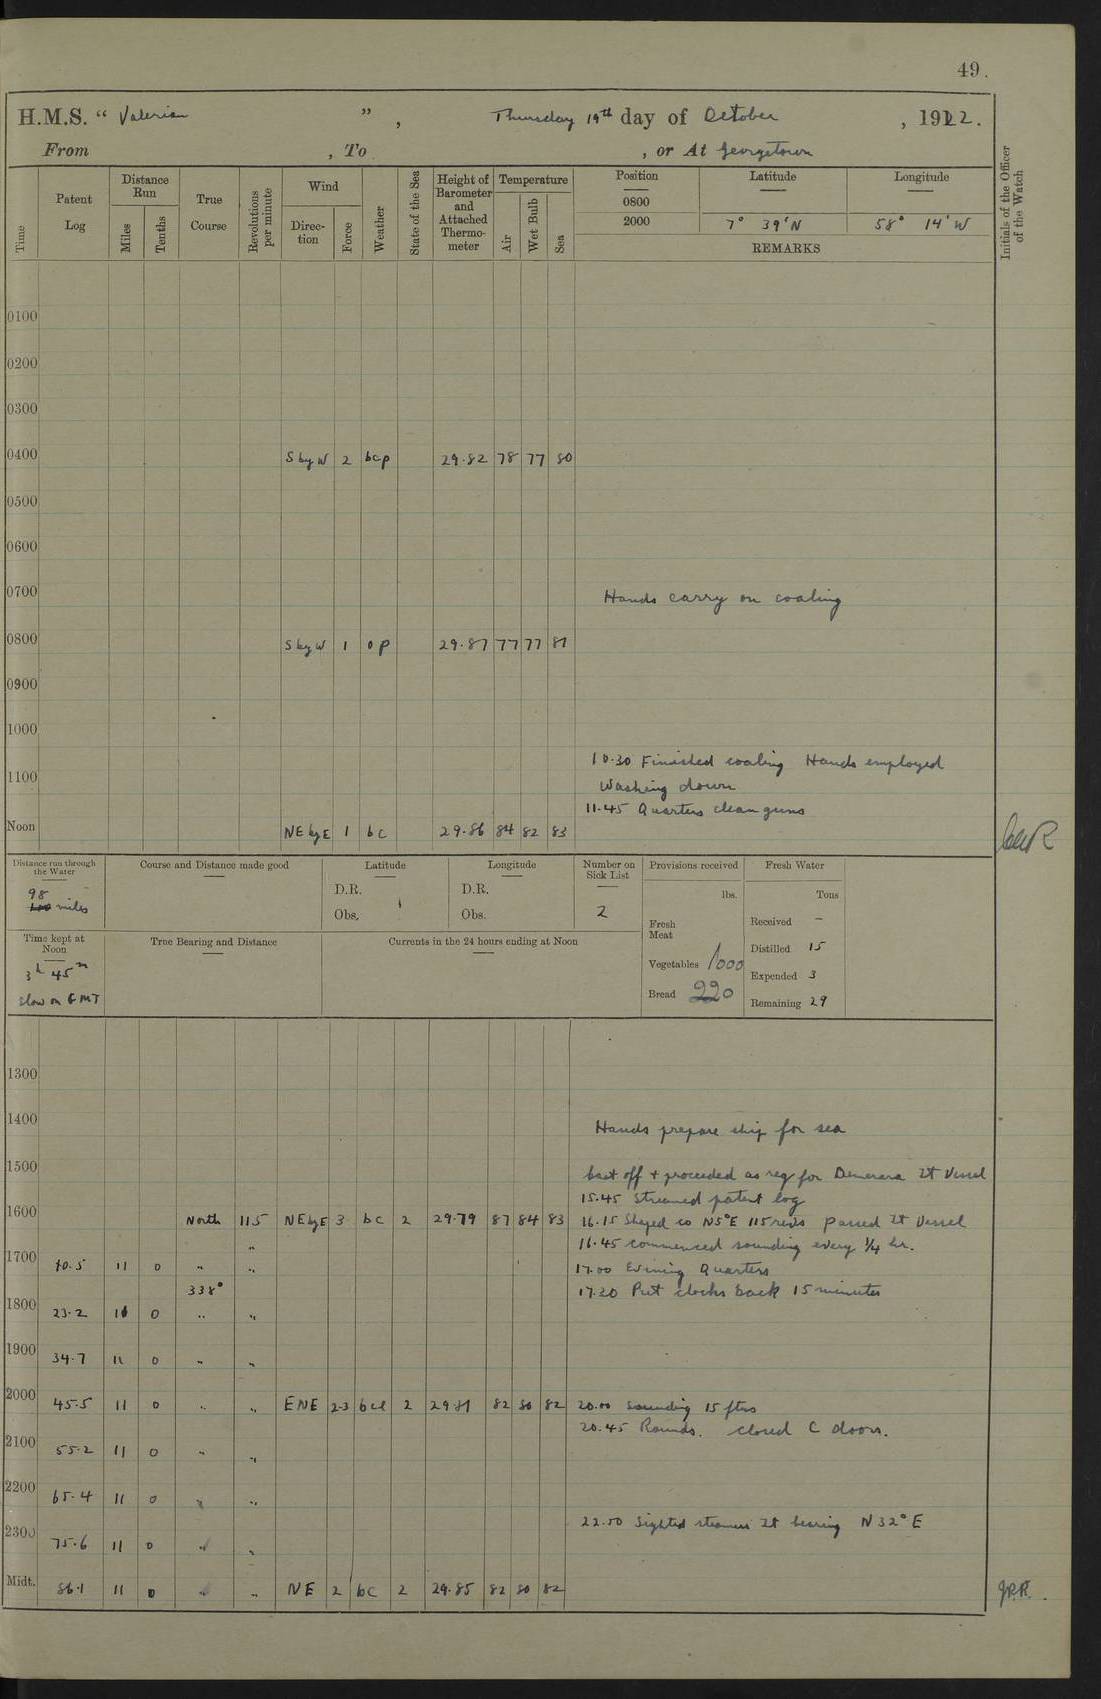 49.
H.M.S. “ Valerian ” , Thursday 19th day of October , 1922.
From , To , or At Georgetown
Time
Patent Log
Distance Run
Miles
Tenths
True Course
Revolutions per minute
Wind
Direc-tion
Force
Weather
State of the Sea
Height of Barometer and Attached Thermo-meter
Temperature
Air
Wet Bulb
Sea
Position Latitude Longitude
0800
2000 7° 39' N 58° 14' W
REMARKS
Initials of the Officer of the Watch
0100
0200
0300
0400 S by W 2 bcp 29.82 78 77 80
0500
0600
0700 Hands carry on coaling
0800 S by W 1 op 29.87 77 77 81
0900
1000
10.30 Finished coaling Hands employed
1100 washing down
11.45 Quarters clean guns
Noon NE by E 1 bc 29.86 84 82 83
Distance run through the Water
98
miles
Course and Distance made good
Latitude
D.R.
Obs.
Longitude
D.R.
Obs.
Number on Sick List
2
Provisions received
lbs.
Fresh Meat
Vegetables 1000
Bread 220
Fresh Water
Tons
Received –
Distilled 15
Expended 3
Remaining 29
Time kept at Noon
3h 45m
slow on GMT
True Bearing and Distance
Currents in the 24 hours ending at Noon
1300
1400 Hands prepare ship for sea
1500 Cast off + proceeded as req for Demerara Lt Vessel
15.45 Streamed patent log
1600 North 115 NE by E 3 bc 2 29.79 87 84 83 16.15 Shaped co N5°E 115 revs Passed Lt Vessel
" 16.45 commenced sounding every 1/4 hr.
1700 10.5 11 0 " " 17.00 Evening Quarters
338° 17.20 Put clocks back 15 minutes
1800 23.2 11 0 " "
1900 34.7 11 0 " "
2000 45.5 11 0 " " ENE 2-3 bcl 2 29.81 82 80 82 20.00 Sounding 15 fms
20.45 Rounds. Closed C doors.
2100 55.2 11 0 " "
2200 65.4 11 0 " "
22.50 Sighted steamers Lt bearing N 32° E
2300 75.6 11 0 " "
Midt. 86.1 11 0 " " NE 2 bc 2 29.85 82 80 82